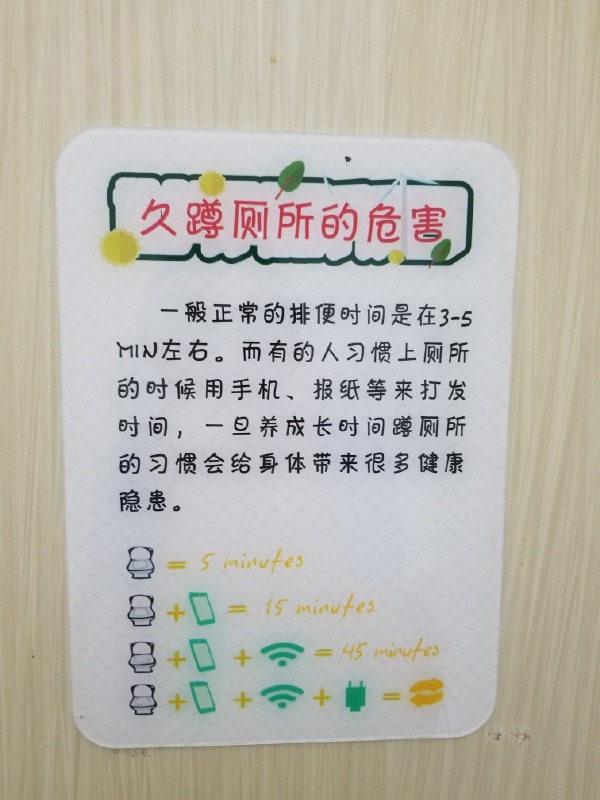 久蹲厕所的危害
一般正常的排便时间是在3-5
MIN左右。而有的人习惯上厕所
的时候用手机、报纸等来打发
时间，一旦养成长时间蹲厕所
的习惯会给身体带来很多健康
隐患。
= 5 minutes
+ = 15 minutes
+ + = 45 minutes
+ + + =